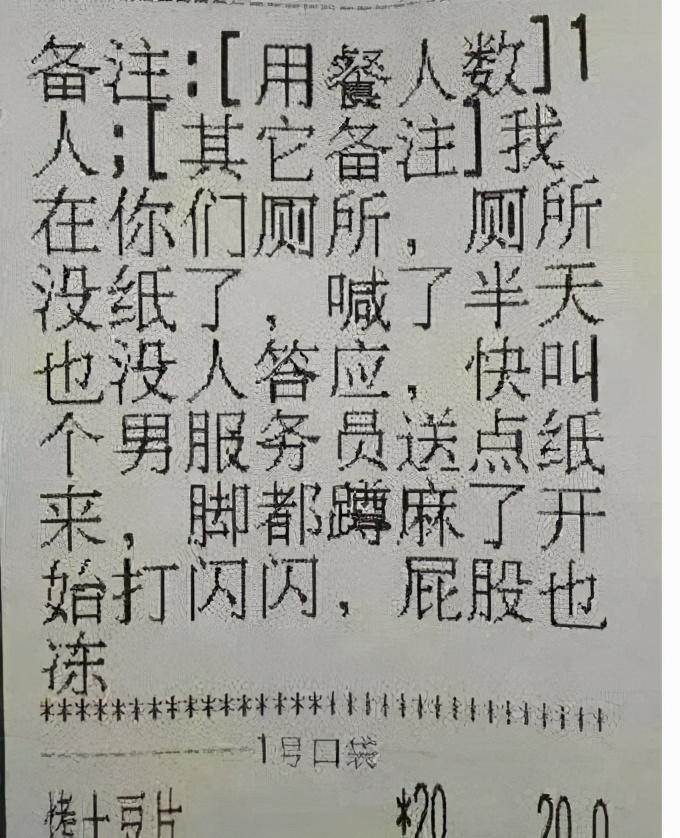 备注:[用餐人数]1
人;[其它备注]我
在你们厕所，厕所
没纸了，喊了半天
也没人答应，快叫
个男服务员送点纸
来，脚都蹲麻了开
始打闪闪，屁股也
冻
********************************
1号口袋
烤土豆片 *20 20.0